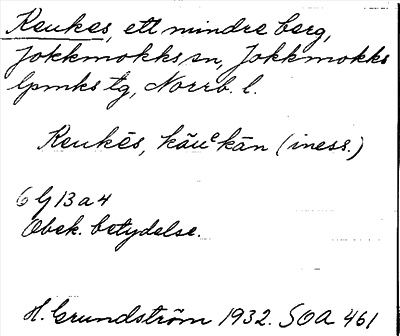 Keukes, ett mindre berg,
Jokkmokks sn, Jokkmokks
lpmks tg, Norrb. l.
Keukēs, kāuᵉkān (iness.)
6 G 13 a 4
Obek. betydelse.
H. Grundström 1932. SOA 461